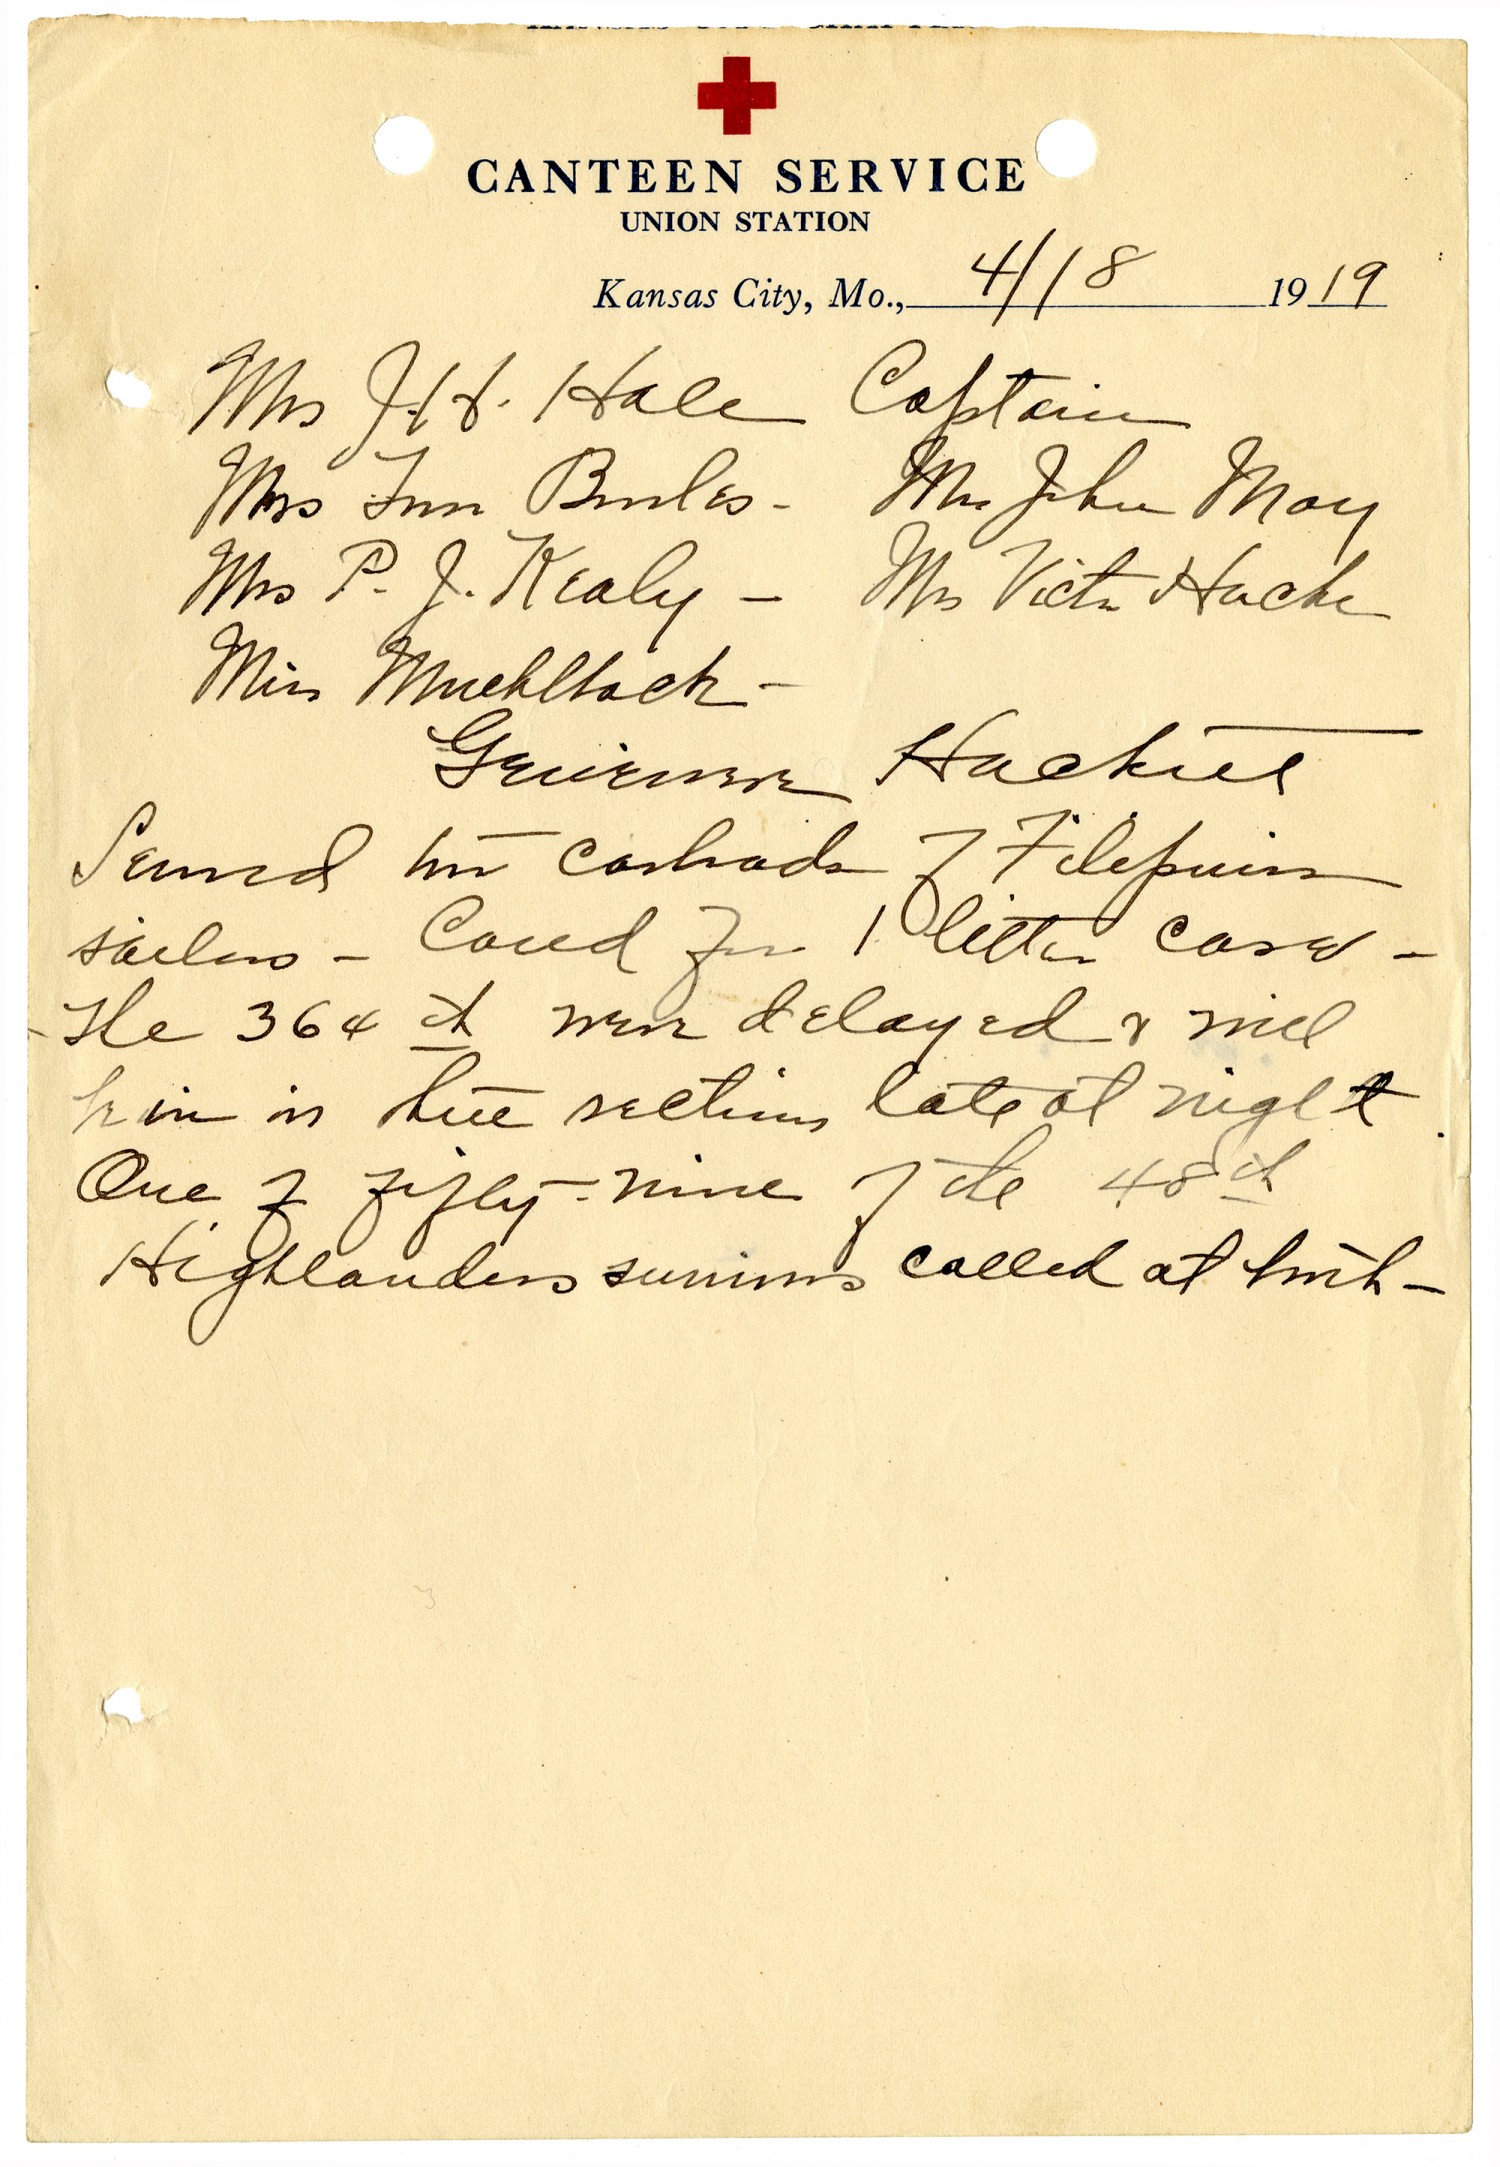 KANSAS CITY CHAPTER
CANTEEN SERVICE
UNION STATION
Kansas City, Mo., 4/18 1919
Mrs J. H. Hale Captain
Mrs Mrs John May
Mrs P. J. Kealy - Mrs Victor Hacke
Miss -
Hackett
Served carloads of Filipinn
sailors - Cared for 1 litter case -
The 364th were delayed & will
be in in three sections late at night.
One of fifty-nine of the 48th
Highlanders called at booth -